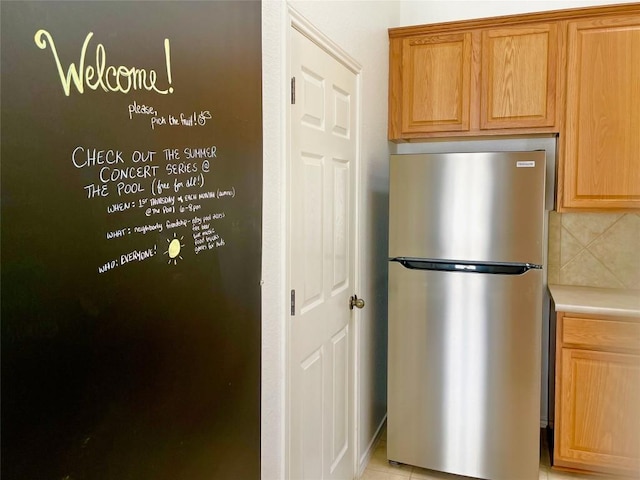 Welcome!
please,
pick the fruit!
CHECK OUT THE SUMMER
CONCERT SERIES @
THE POOL (free for all!)
WHEN: 1ST THURSDAY of EACH MONTH
@ the Pool 6-8pm
WHAT: neighborly friendship - enjoy pool access
live music
food trucks
games for kids
WHO: EVERYONE!